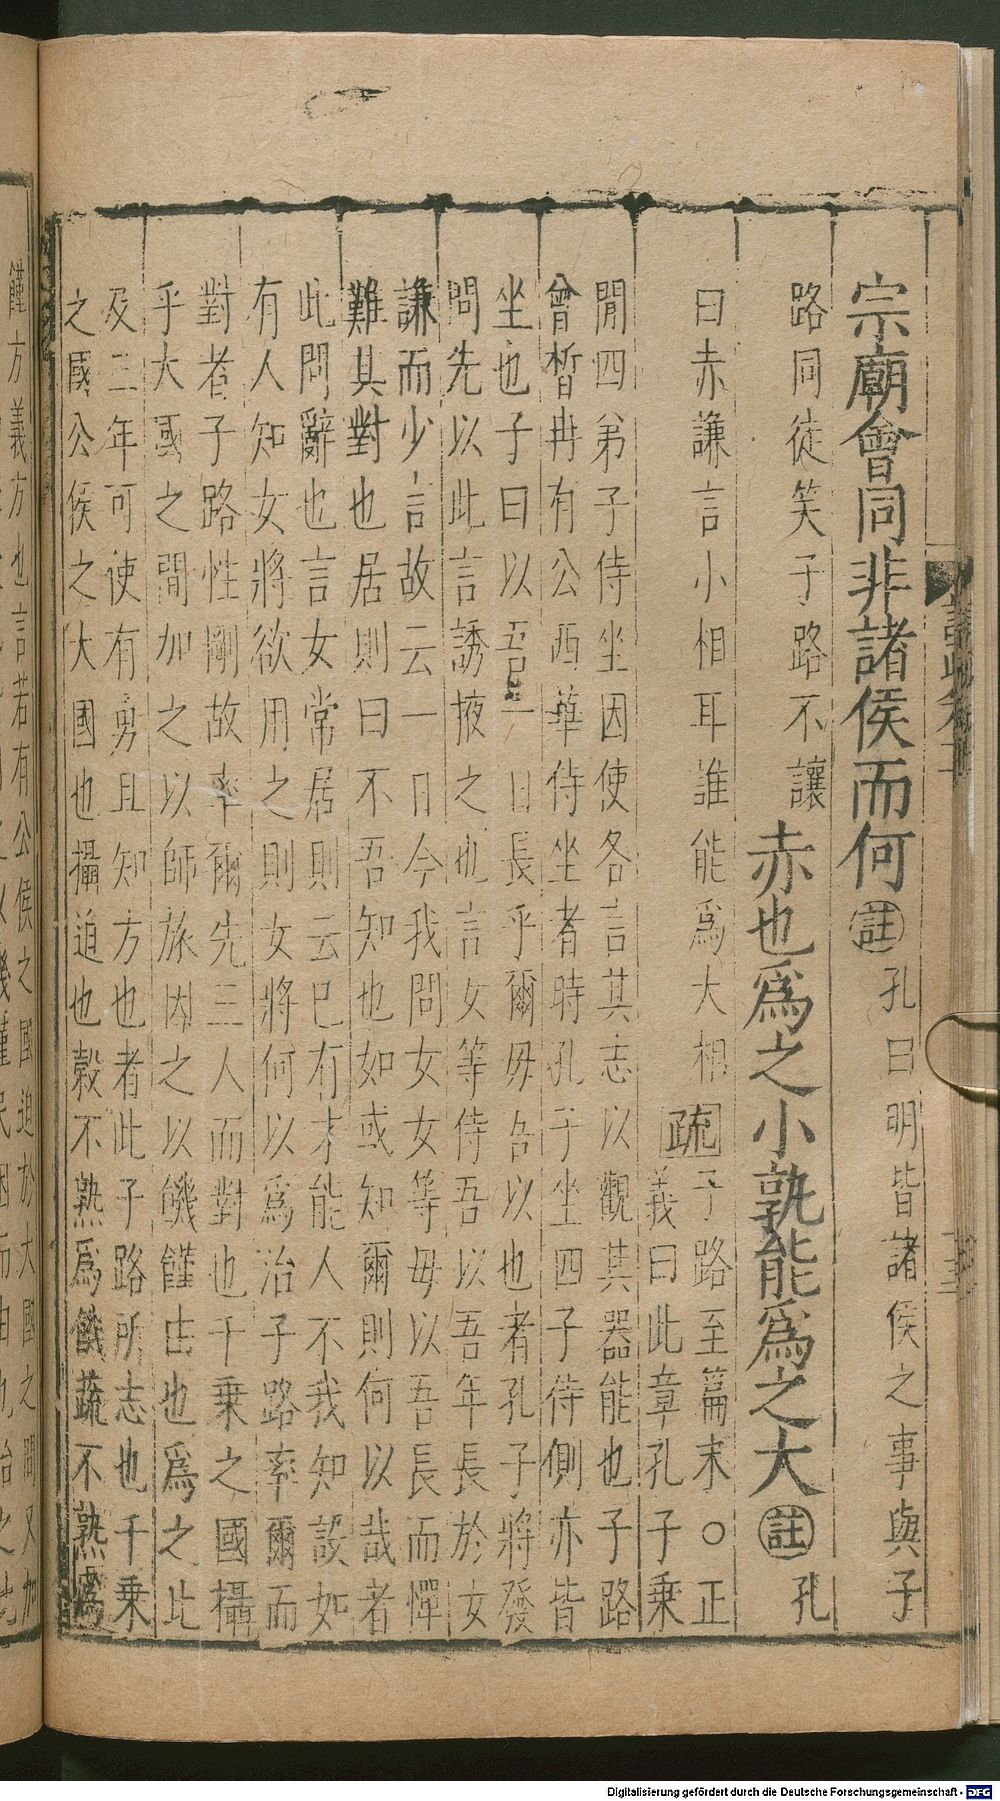 宗廟會同非諸侯而何註孔曰明皆諸侯之事與子
路同徒笑子路不讓赤也爲之小孰能爲之大註孔
曰赤謙言小相耳誰能爲大相疏子路至篇末○正
義曰此章孔子乘
閒四弟子侍坐因使各言其志以觀其器能也子路
曾晳冉有公西華侍坐者時孔子坐四子侍側亦皆
坐也子曰以吾一日長乎爾毋吾以也者孔子將發
問先以此言誘掖之也言女等侍吾以吾年長於女
謙而少言故云一日今我問女女等毋以吾長而憚
難其對也居則曰不吾知也如或知爾則何以哉者
此問辭也言女常居則云己有才能人不我知設如
有人知女將欲用之則女將何以爲治子路率爾而
對者子路性剛故率爾先三人而對也千乘之國攝
乎大國之間加之以師旅因之以饑饉由也爲之比
及三年可使有勇且知方也者此子路所志也千乘
之國公侯之大國也攝迫也穀不熟爲饑蔬不熟爲
饉方義方也言若有公侯之國迫於大國之間又加
Digitalisierung gefördert durch die Deutsche Forschungsgemeinschaft - DFG